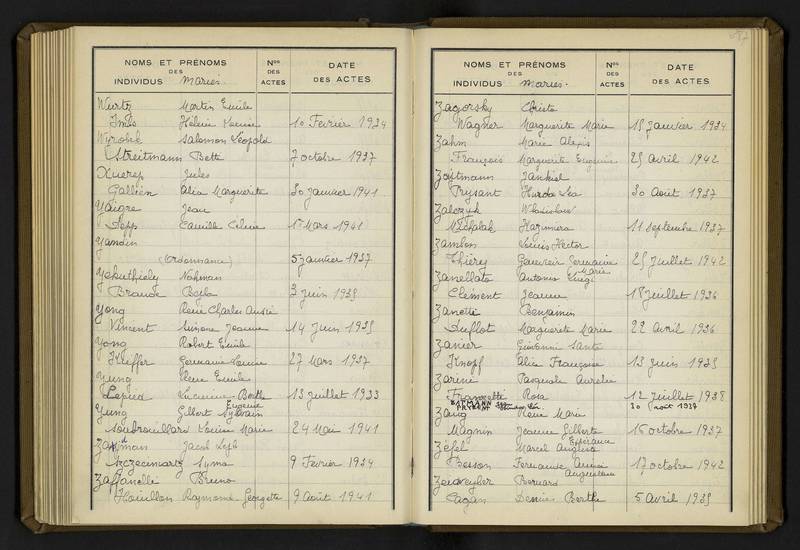 NOMS ET PRÉNOMS
DES
INDIVIDUS Mariés.
Nos
DES
ACTES
DATE
DES ACTES
Wurtz Martin Emile
Hélène Louise 10 Fevrier 1934
Salomon Léopold
Streitmann Berthe 7 octobre 1937
Xuereb Jules
Gallien Alice Marguerite 30 Janvier 1941
Yaigre Jean
Camille Celine 15 Mars 1941
Yamoun
(Ordonnance) 5 janvier 1937
Yekuthiely Nahman
Braude Beila 3 Juin 1935
Yong René Charles André
Vincent Simone Jeanne 14 Juin 1935
Yong Robert Emile
Kieffer Germaine Louise 27 Mars 1937
Yung Pierre Emile
Lucienne Berthe 13 juillet 1933
Eugène
Yung Gilbert Sylvain
Soudrouillard Louise Marie 24 Mai 1941
Jacob Lejb
Szczeciniarz Syma 9 Fevrier 1934
Zaffanelli Bruno
Raymonde Georgette 9 Août 1941
NOMS ET PRÉNOMS
DES
INDIVIDUS Mariés.
Nos
DES
ACTES
DATE
DES ACTES
Zagorsky Christo
Wagner Marguerite Marie 15 Janvier 1934
Zahm Marie Alexis
François Marguerite Eugénie 25 Avril 1942
Jankiel
Prysant 30 Août 1937
Zalczyk
Michalak Kazimiera 11 Septembre 1937
Zambon Louis Hector
Thiéry Germaine 25 Juillet 1942
Marie
Zanellato Antonio Luigi
Clément Jeanne 18 Juillet 1936
Zanetti Benjamin
Duflot Marguerite Marie 22 Avril 1936
Zanier Giovanni Santo
Knopf Alice Françoise 13 Juin 1935
Zarini Pasquale Aurelio
Francette Rosa 12 Juillet 1938
30 août 1937
Zaug René Marie
Magnin Jeanne Gilberte 16 octobre 1937
Zéfel Marcel Auguste
Besson Fernande 17 octobre 1942
Augustine
Zeuweyler Bernard
Cazan Denise Berthe 5 Avril 1935